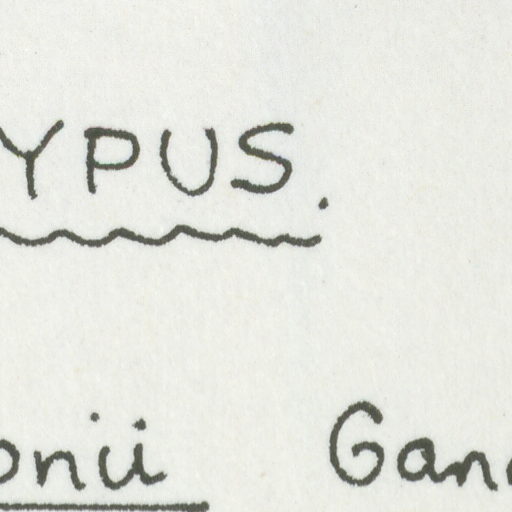 YPUS.
onii Gan